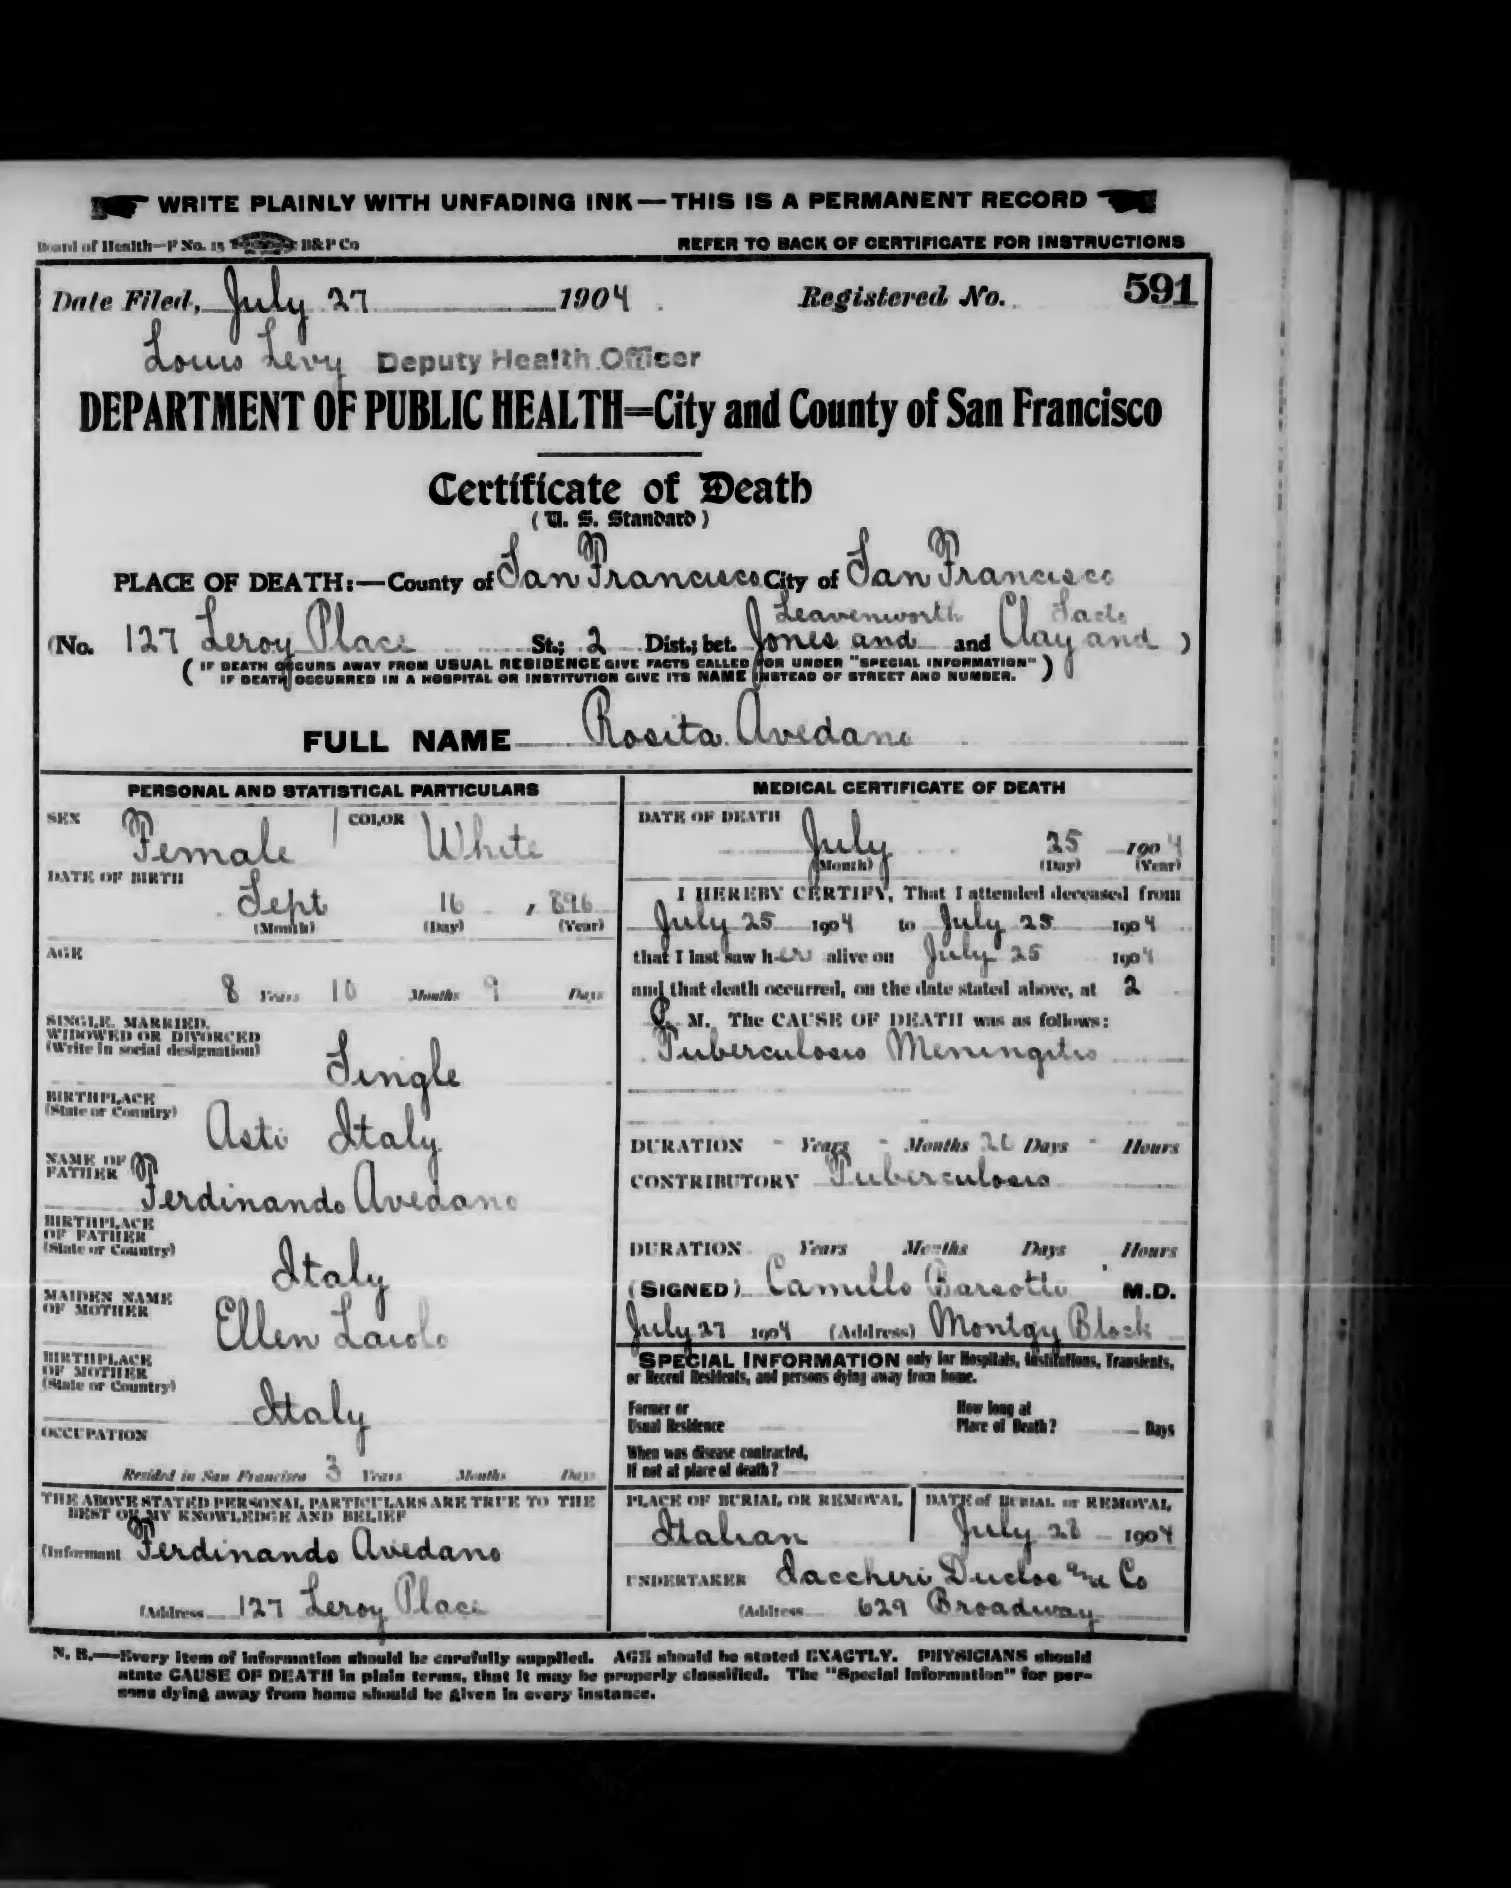 WRITE PLAINLY WITH UNFADING INK—THIS IS A PERMANENT RECORD
Board of Health—F No. 15 B&P Co
REFER TO BACK OF CERTIFICATE FOR INSTRUCTIONS
Date Filed, July 27 1904 Registered No. 591
Louis Levy Deputy Health Officer
DEPARTMENT OF PUBLIC HEALTH—City and County of San Francisco
Certificate of Death
(U. S. Standard)
PLACE OF DEATH:—County of San Francisco City of San Francisco
Leavenworth Sacto
(No. 127 Leroy Place St.; 2 Dist.; bet. Jones and and Clay and )
(IF DEATH OCCURS AWAY FROM USUAL RESIDENCE GIVE FACTS CALLED FOR UNDER "SPECIAL INFORMATION"
IF DEATH OCCURRED IN A HOSPITAL OR INSTITUTION GIVE ITS NAME INSTEAD OF STREET AND NUMBER.)
FULL NAME Rosita Avedano
PERSONAL AND STATISTICAL PARTICULARS
SEX Female COLOR White
DATE OF BIRTH
Sept 16 , 896
(Month) (Day) (Year)
AGE
8 Years 10 Months 9 Days
SINGLE, MARRIED,
WIDOWED OR DIVORCED
(Write in social designation)
Single
BIRTHPLACE
(State or Country)
Asti Italy
NAME OF
FATHER
Ferdinando Avedano
BIRTHPLACE
OF FATHER
(State or Country)
Italy
MAIDEN NAME
OF MOTHER
Ellen Laiolo
BIRTHPLACE
OF MOTHER
(State or Country)
Italy
OCCUPATION
Resided in San Francisco 3 Years Months Days
THE ABOVE STATED PERSONAL PARTICULARS ARE TRUE TO THE
BEST OF MY KNOWLEDGE AND BELIEF
(Informant Ferdinando Avedano
(Address 127 Leroy Place
MEDICAL CERTIFICATE OF DEATH
DATE OF DEATH
July 25 1904
(Month) (Day) (Year)
I HEREBY CERTIFY, That I attended deceased from
July 25 1904 to July 25 1904
that I last saw her alive on July 25 1904
and that death occurred, on the date stated above, at 2
P. M. The CAUSE OF DEATH was as follows:
Tuberculosis Meningitis
DURATION - Years - Months 20 Days - Hours
CONTRIBUTORY Tuberculosis
DURATION Years Months Days Hours
(SIGNED) Camillo Barsotti M.D.
July 27 1904 (Address) Montgy Block
SPECIAL INFORMATION only for Hospitals, Institutions, Transients,
or Recent Residents, and persons dying away from home.
Former or
Usual Residence
How long at
Place of Death? Days
When was disease contracted,
If not at place of death?
PLACE OF BURIAL OR REMOVAL
Italian
DATE of BURIAL or REMOVAL
July 28 1904
UNDERTAKER Iaccheri Duclos and Co
(Address 629 Broadway
N. B.—Every item of information should be carefully supplied. AGE should be stated EXACTLY. PHYSICIANS should
state CAUSE OF DEATH in plain terms, that it may be properly classified. The "Special Information" for per-
sons dying away from home should be given in every instance.